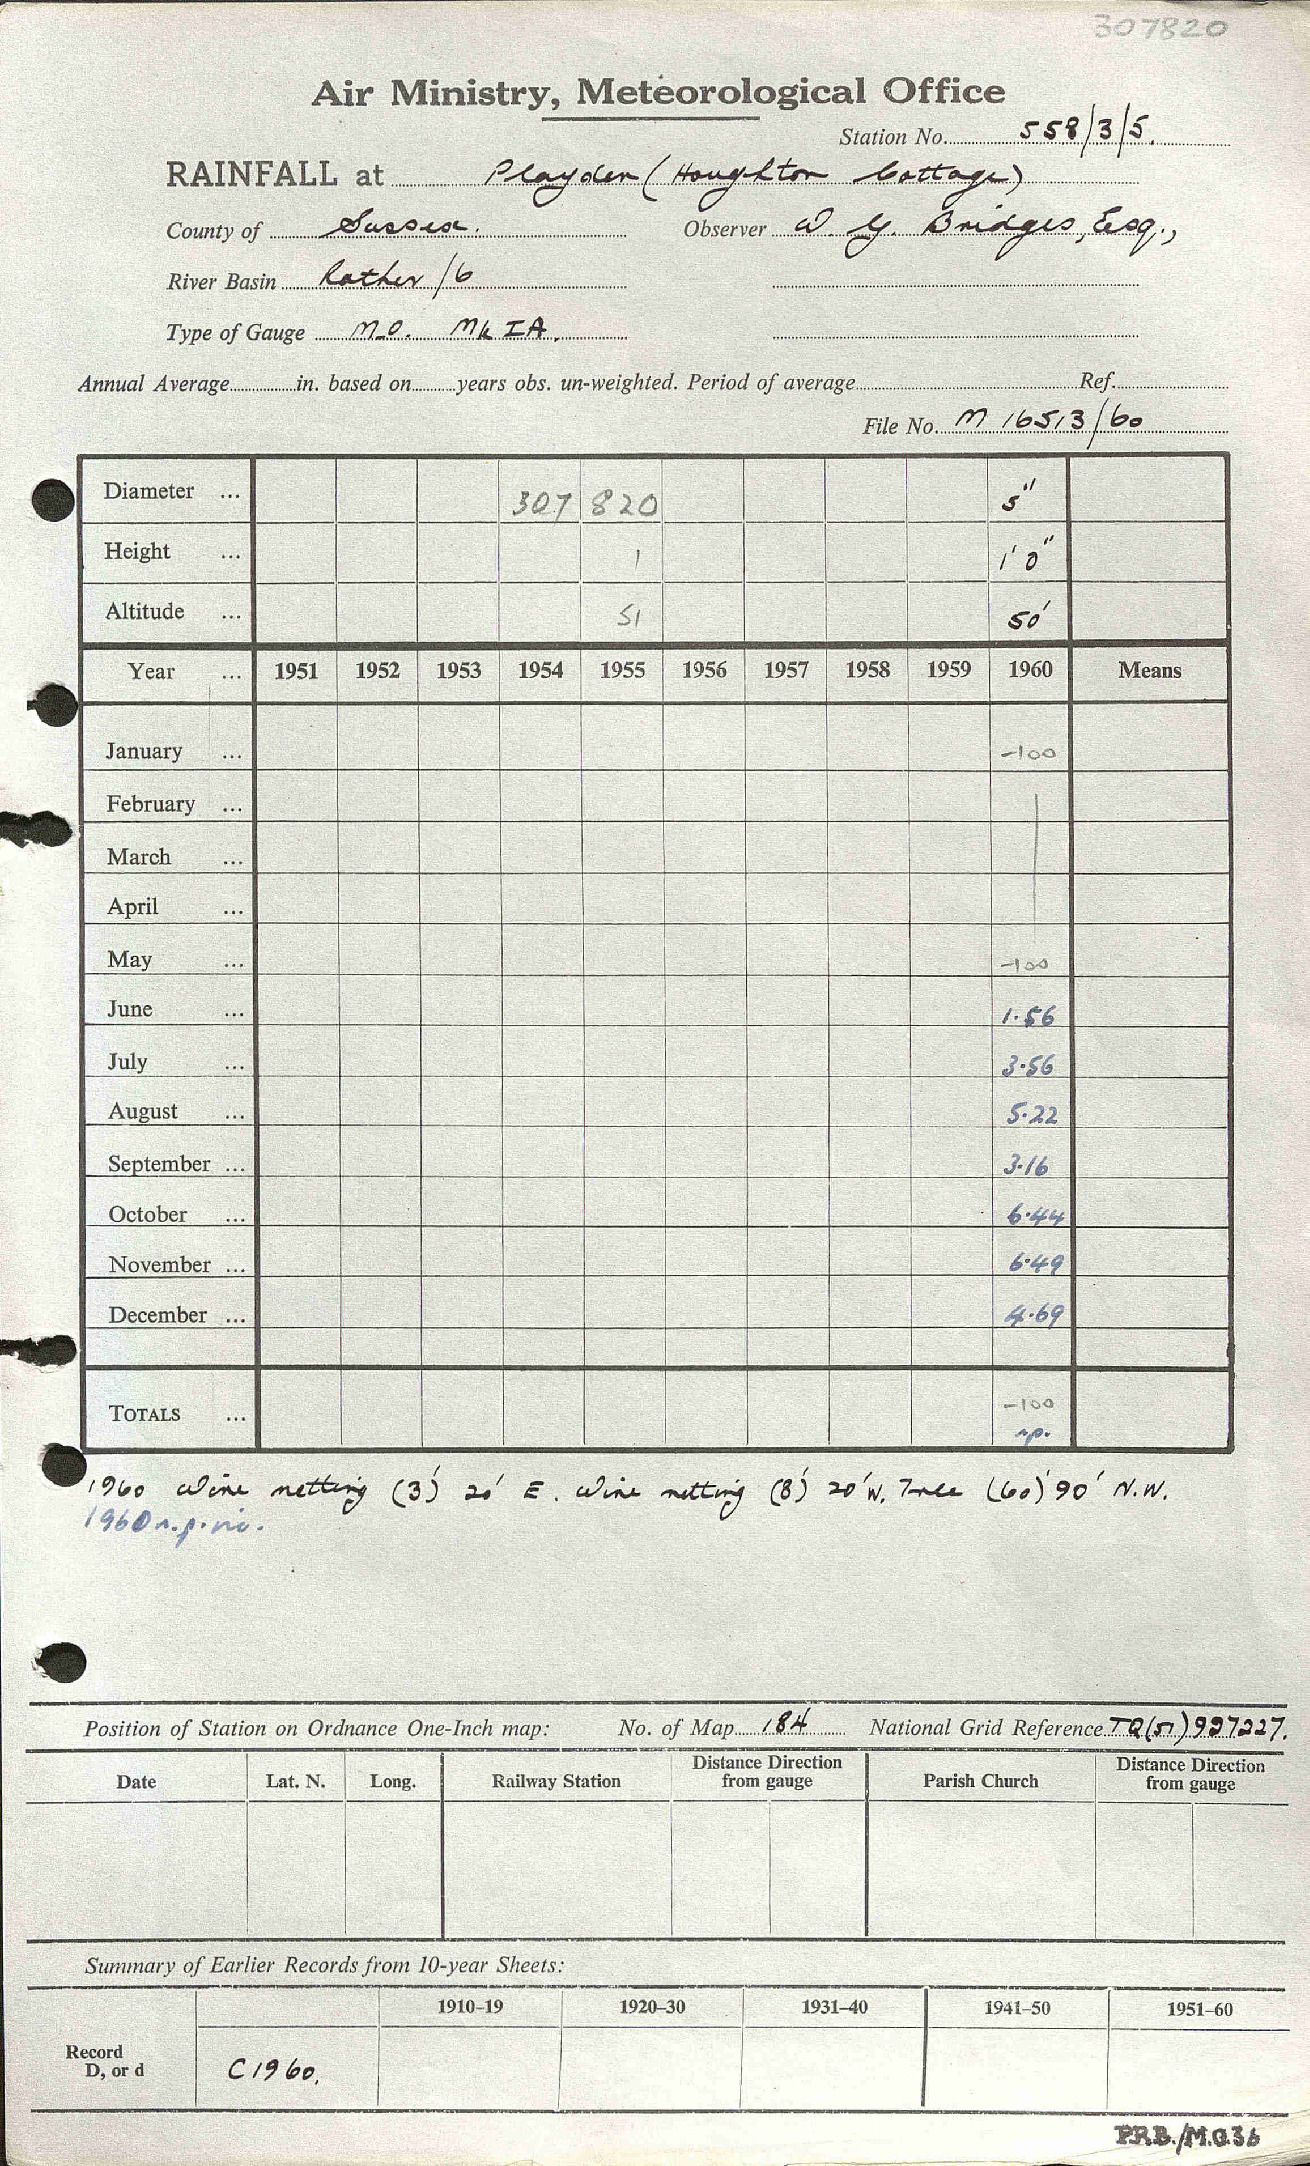 307820
Air Ministry, Meteorological Office
Station No. 558/3/5.
RAINFALL at Playden (Houghton Cottage)
County of Sussex. Observer W. G. Bridges, Esq.,
River Basin Rother /6
Type of Gauge M.O. Mk IA.
Annual Average in. based on years obs. un-weighted. Period of average Ref.
File No. M 16513/60
Diameter ... 307 820 5"
Height ... 1 1' 0"
Altitude ... 51 50'
Year ... 1951 1952 1953 1954 1955 1956 1957 1958 1959 1960 Means
January ... -100
February ...
March ...
April ...
May ... -100
June ... 1.56
July ... 3.56
August ... 5.22
September ... 3.16
October ... 6.44
November ... 6.49
December ... 4.69
TOTALS ... -100
n.p.
1960 Wire netting (3') 20' E. Wire netting (8') 20' W. Tree (60') 90' N.W.
1960 n.p. in.
Position of Station on Ordnance One-Inch map: No. of Map 184 National Grid Reference TQ(51)927227.
Date Lat. N. Long. Railway Station Distance Direction from gauge Parish Church Distance Direction from gauge
Summary of Earlier Records from 10-year Sheets:
1910–19 1920–30 1931–40 1941–50 1951–60
Record
D, or d C1960.
P.R.B./M.O.36